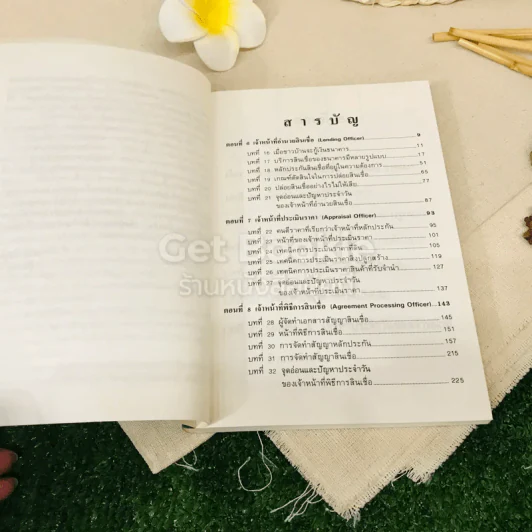 สารบัญ
ตอนที่ 6 เจ้าหน้าที่อำนวยสินเชื่อ (Lending Officer) 9
บทที่ 16 เมื่อชาวบ้านจะกู้เงินธนาคาร 11
บทที่ 17 บริการสินเชื่อของธนาคารมีหลายรูปแบบ 17
บทที่ 18 หลักประกันสินเชื่อที่อยู่ในความต้องการ 51
บทที่ 19 เกณฑ์ตัดสินใจในการปล่อยสินเชื่อ 65
บทที่ 20 ปล่อยสินเชื่ออย่างไรไม่ให้เสีย 77
บทที่ 21 จุดอ่อนและปัญหาประจำวัน
ของเจ้าหน้าที่อำนวยสินเชื่อ 87
ตอนที่ 7 เจ้าหน้าที่ประเมินราคา (Appraisal Officer) 93
บทที่ 22 คนตีราคาที่เรียกว่าเจ้าหน้าที่หลักประกัน 95
บทที่ 23 หน้าที่ของเจ้าหน้าที่ประเมินราคา 101
บทที่ 24 เทคนิคการประเมินราคาที่ดิน 105
บทที่ 25 เทคนิคการประเมินราคาสิ่งปลูกสร้าง 119
บทที่ 26 เทคนิคการประเมินราคาสินค้าที่รับจำนำ 127
จุดอ่อนและปัญหาประจำวัน
ของเจ้าหน้าที่ประเมินราคา 137
ตอนที่ 8 เจ้าหน้าที่พิธีการสินเชื่อ (Agreement Processing Officer) 143
บทที่ 28 ผู้จัดทำเอกสารสัญญาสินเชื่อ 145
บทที่ 29 หน้าที่พิธีการสินเชื่อ 151
บทที่ 30 การจัดทำสัญญาหลักประกัน 157
บทที่ 31 การจัดทำสัญญาสินเชื่อ 215
บทที่ 32 จุดอ่อนและปัญหาประจำวัน
ของเจ้าหน้าที่พิธีการสินเชื่อ 225